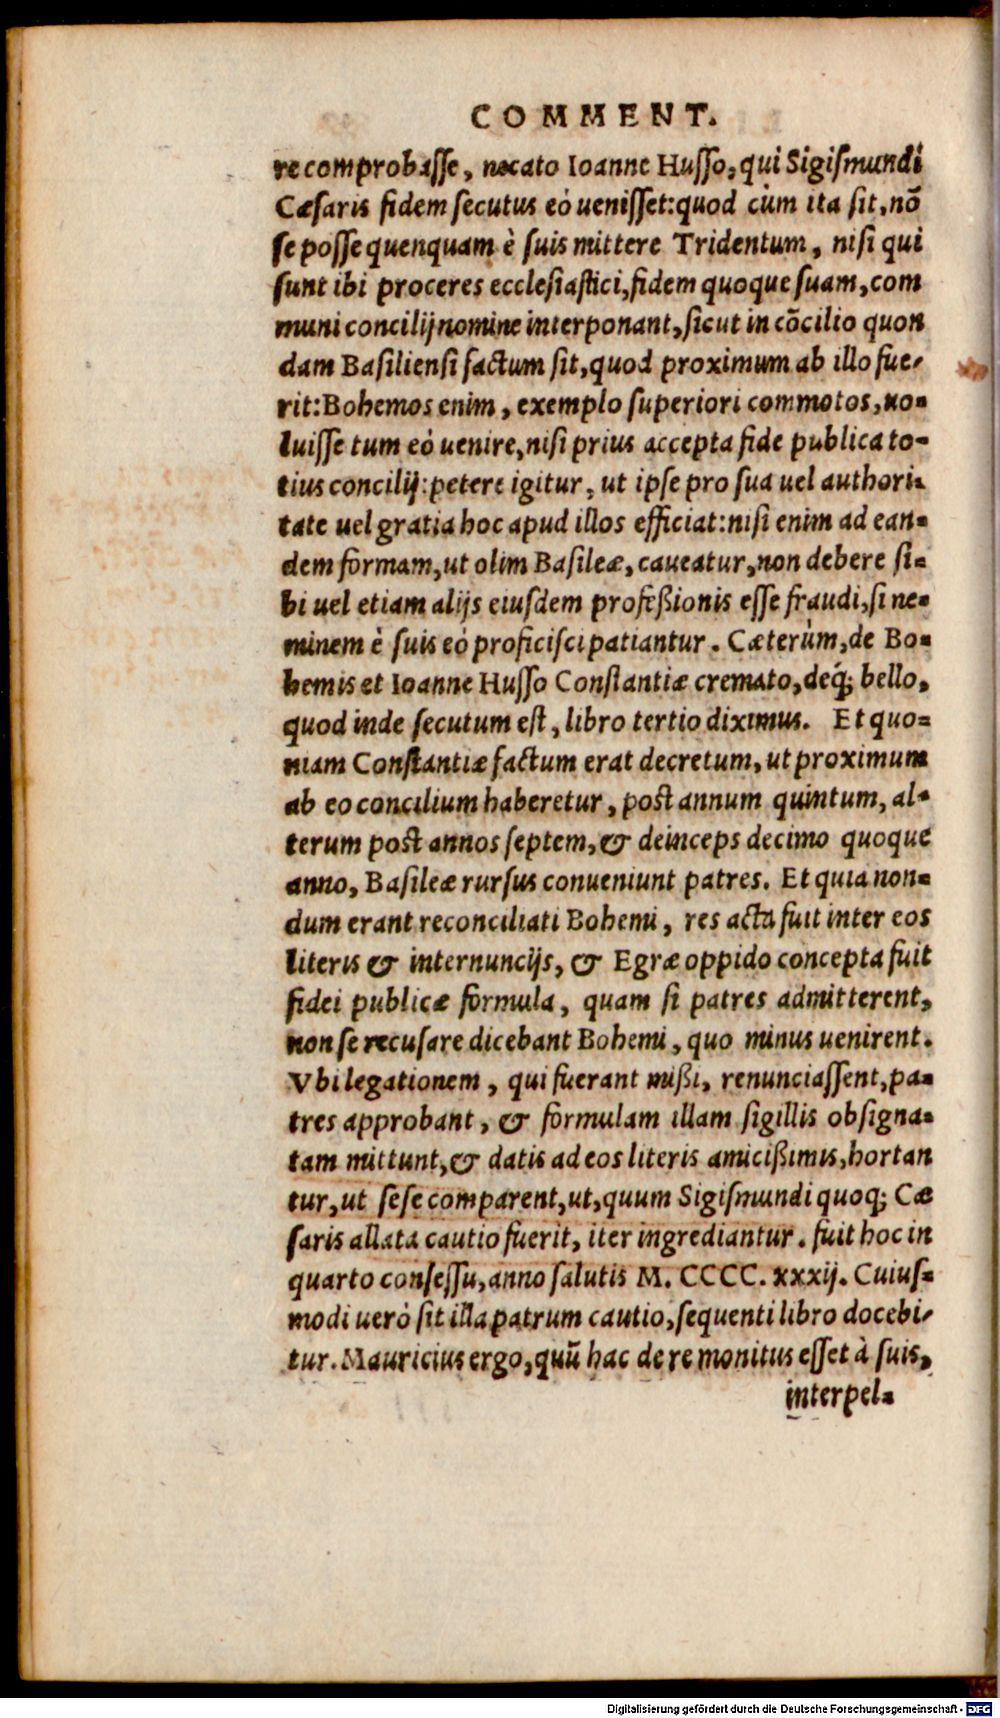 COMMENT.
re comprobasse, necato Ioanne Husso, qui Sigismundi
Cæsaris fidem secutus eò uenisset: quod cùm ita sit, nõ
se posse quenquam è suis mittere Tridentum, nisi qui
sunt ibi proceres ecclesiastici, fidem quoque suam, com
muni concilij nomine interponant, sicut in cõcilio quon
dam Basiliensi factum sit, quod proximum ab illo fue-
rit: Bohemos enim, exemplo superiori commotos, no-
luisse tum eò uenire, nisi prius accepta fide publica to-
tius concilij: petere igitur, ut ipse pro sua uel authori-
tate uel gratia hoc apud illos efficiat: nisi enim ad ean-
dem formam, ut olim Basileæ, caueatur, non debere si-
bi uel etiam alijs eiusdem profeßionis esse fraudi, si ne-
minem è suis eò proficisci patiantur. Cæterùm, de Bo-
hemis et Ioanne Husso Constantiæ cremato, deq́; bello,
quod inde secutum est, libro tertio diximus. Et quo-
niam Constantiæ factum erat decretum, ut proximum
ab eo concilium haberetur, post annum quintum, al-
terum post annos septem, & deinceps decimo quoque
anno, Basileæ rursus conueniunt patres. Et quia non-
dum erant reconciliati Bohemi, res acta fuit inter eos
literis & internuncijs, & Egræ oppido concepta fuit
fidei publicæ formula, quam si patres admitterent,
non se recusare dicebant Bohemi, quo minus uenirent.
Vbi legationem, qui fuerant mißi, renunciassent, pa-
tres approbant, & formulam illam sigillis obsigna-
tam mittunt, & datis ad eos literis amicißimis, hortan
tur, ut sese comparent, ut, quum Sigismundi quoq; Cæ
saris allata cautio fuerit, iter ingrediantur. fuit hoc in
quarto consessu, anno salutis M. CCCC. xxxij. Cuius-
modi uerò sit illa patrum cautio, sequenti libro docebi-
tur. Mauricius ergo, quũ hac de re monitus esset à suis,
interpel-
Digitalisierung gefördert durch die Deutsche Forschungsgemeinschaft - DFG